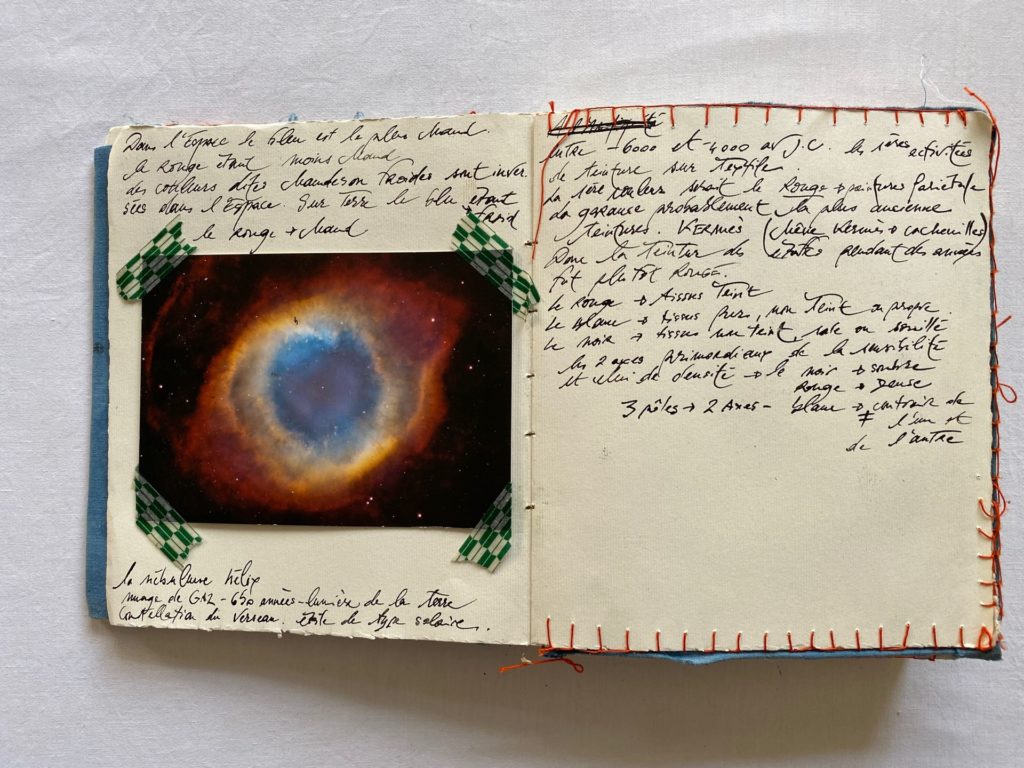 Dans l'Espace le bleu est le plus chaud.
le Rouge étant moins chaud
des couleurs dites chaudes on froides sont inver
sées dans l'Espace. Sur Terre le bleu étant
froid
le rouge → chaud
la nébuleuse hélix
nuage de GAZ - 650 années-lumière de la terre
constellation du Verseau. étoile de type solaire.
entre -6000 et -4000 av J.C. les 1ères activités
de teinture sur Textile.
La 1ère couleur serait le Rouge → peintures pariétale
La garance probablement la plus ancienne
teintures. KERMÈS (chêne Kermès → cochenilles)
Donc la teinture des étoffes pendant des années
fut plutôt Rouge.
le Rouge → tissus Teint
Le blanc → tissus purs, non Teint ou propre
Le noir → tissus non teint, sale ou souillé
les 2 axes primordiaux de la sensibilité
et celui de densité → le noir → sombre
Rouge → Dense
3 pôles → 2 Axes - blanc → contraire de
≠ l'un et
de l'autre